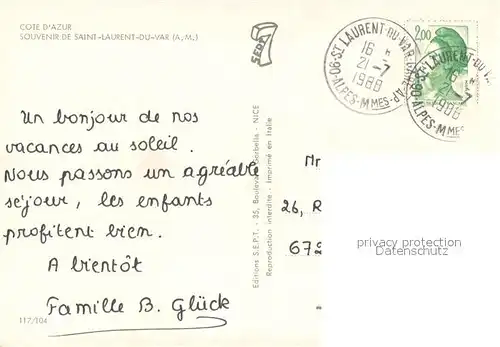 COTE D'AZUR
SOUVENIR DE SAINT-LAURENT-DU-VAR (A.M.)
SEPT
06-ST LAURENT-DU-VAR
16 H
21-7
1988
ALPES-MMES
2,00
06-ST LAURENT-DU-VAR
16
21-7
1988
ALPES-MMES
Un bonjour de nos
vacances au soleil.
Nous passons un agréable
séjour, les enfants
profitent bien.
A bientôt
Famille B. Glück
117/104
Editions S.E.P.T. - 35, Boulevard Gorbella - NICE
Reproduction interdite - Imprimé en Italie
Mr
26, R
672
privacy protection
Datenschutz